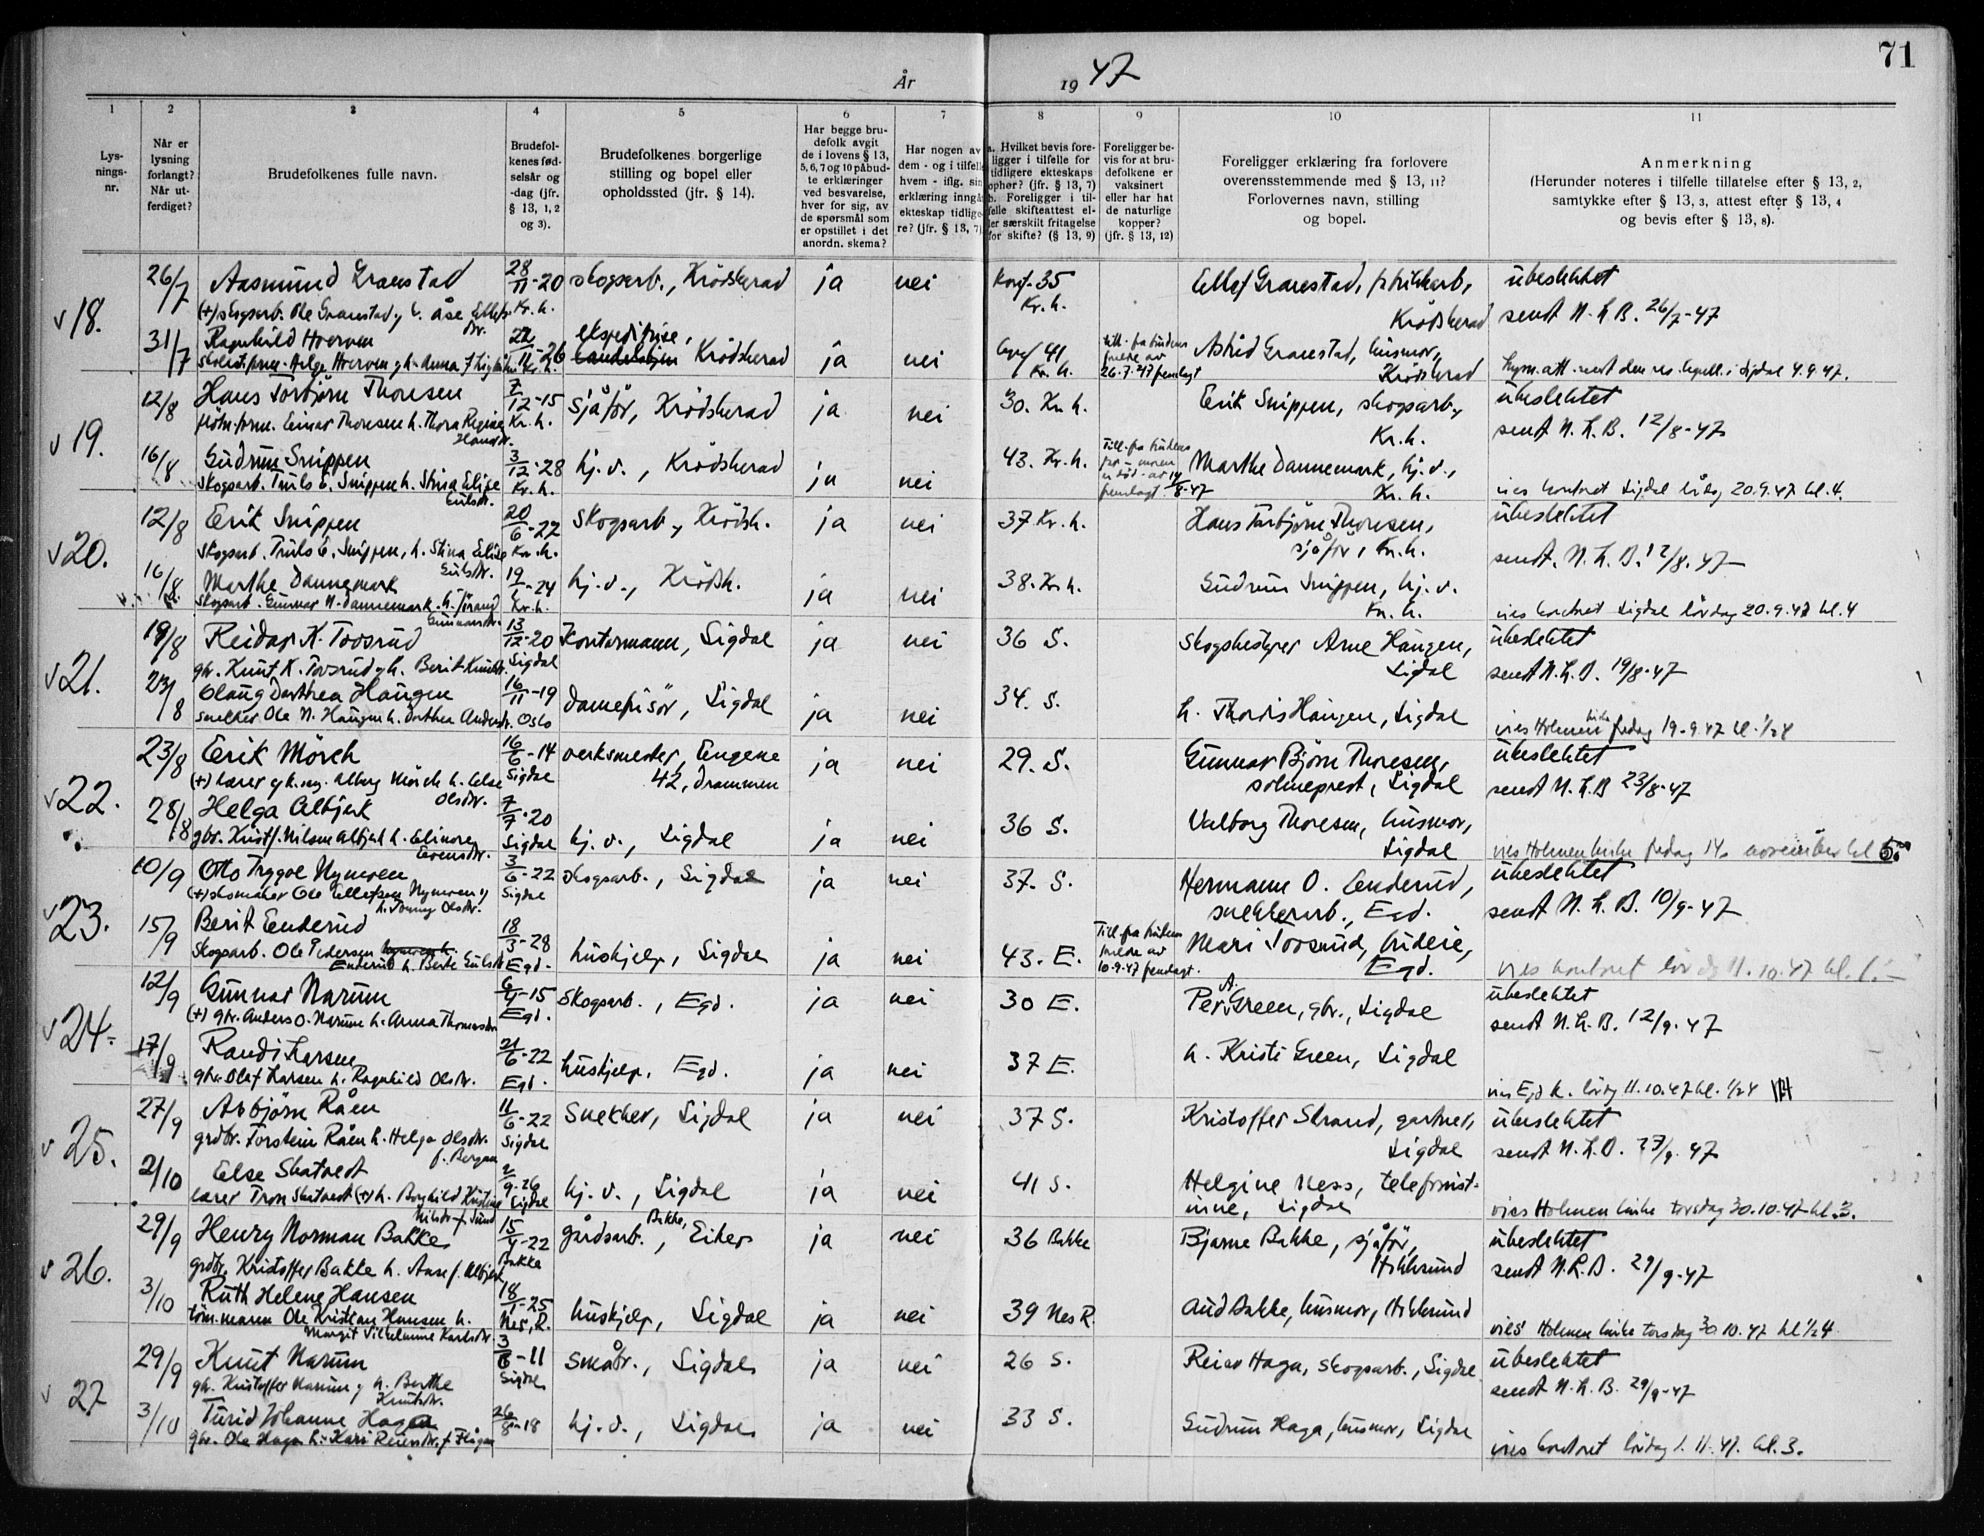 71
År 1947
1 2 3 4 5 6 7 8 9 10 11
Lys-
nings-
nr.
Når er
lysning
forlangt?
Når ut-
ferdiget?
Brudefolkenes fulle navn.
Brudefol-
kenes fød-
selsår og
-dag (jfr.
§ 13, 1, 2
og 3).
Brudefolkenes borgerlige
stilling og bopel eller
opholdssted (jfr. § 14).
Har begge bru-
defolk avgit
de i lovens § 13,
5, 6, 7 og 10 påbud-
te erklæringer
ved besvarelse,
hver for sig, av
de spørsmål som
er opstillet i det
anordn. skema?
Har nogen av
dem - og i tilfelle
hvem - iflg. sin
erklæring inngå
ekteskap tidlige-
re? (jfr. § 13, 7)
a. Hvilket bevis fore-
ligger i tilfelle for
tidligere ekteskaps
ophør? (jfr. § 13, 7)
b. Foreligger i til-
felle skifteattest el-
ler særskilt fritagelse
for skifte? (§ 13, 9)
Foreligger be-
vis for at bru-
defolkene er
vaksinert
eller har hat
de naturlige
kopper?
(jfr. § 13, 12)
Foreligger erklæring fra forlovere
overensstemmende med § 13, 11?
Forlovernes navn, stilling
og bopel.
Anmerkning
(Herunder noteres i tilfelle tillatelse efter § 13, 2,
samtykke efter § 13, 3, attest efter § 13, 4
og bevis efter § 13, 8).
v 18. 26/7 Aasmund Granestad 28/11-20 skogsarb., Krödsherad ja nei Konf. 35 Ellef Granestad, Krödsherad ubeslektet
(+) skogsarb. Ole Granestad Kr. h. Kr. h. sendt N.L.B. 26/7-47
31/7 Ragnhild Hoverven 22/11-26 Krödsherad ja nei 41 Kr. h. Till. fra 26.7.47 fremlagt Astrid Granestad, husmor, Krödsherad
v 19. 12/8 Hans Torbjörn Thoresen 7/12-15 sjåför, Krödsherad ja nei 30. Kr. h. Erik Snippen, skogsarb., ubeslektet
Einar Thoresen h. Thora Regine Kr. h. Kr. h. sendt N.L.B. 12/8-47
16/8 Gudrun Snippen 3/12-28 hj. v., Krödsherad ja nei 43. Kr. h. Marthe Dannemark, hj. v.,
Skogsarb. Truls E. Snippen h. Stina Elise Kr. h. Kr. h. vies kontoret Sigdal lördag 20.9.47 kl. 4.
v 20. 12/8 Erik Snippen 20/6-22 skogsarb., Krödsh. ja nei 37 Kr. h. Hans Torbjörn Thoresen, ubeslektet
skogsarb. Truls E. Snippen, h. Stina Elise Kr. h. sjåför, Kr. h. sendt. N.L.B. 12/8.47
16/8 Marthe Dannemark hj. v., Krödsh. ja nei 38. Kr. h. Gudrun Snippen, hj. v.
Skogsarb. Gunnar N. Dannemark h. Jörand Gunnarsdtr. Kr. h. Kr. h. vies kontoret Sigdal lördag 20.9.47 kl. 4
v 21. 19/8 Reidar K. Toosrud 13/12-20 Kontormann, Sigdal ja nei 36 S. Skogbestyrer Arne Haugen, ubeslektet
gbr. Knut K. Toosrud h. Berit Knutsdtr. Sigdal Sigdal sendt N.L.B. 19/8-47
23/8 Olaug Dorthea Haugen 16/11-19 Damefrisör, Sigdal ja nei 34. S. h. Thordis Haugen, Sigdal
snekker Ole N. Haugen h. Dorthea Andersdtr. Oslo vies Holmen kirke fredag 19.9.47 kl. 1/2 4
v 22. 23/8 Erik Mörch 16/6-14 verksmester, Engene ja nei 29. S. Gunnar Björn Thoresen, ubeslektet
(+) lærer og k.sng. Alborg Mörch h. Else Olsdtr. Sigdal 42, Drammen sokneprest, Sigdal sendt N.L.B 23/8-47
28/8 Helga Albjerk 7/7-20 hj. v., Sigdal ja nei 36 S. Valborg Thoresen, husmor,
gbr. Kristf. Nilsen Albjerk h. Elinore Evensdtr. Sigdal Sigdal vies Holmen kirke fredag 14. november kl 5
v 23. 10/9 Otto Trygve Nymoen 3/6-22 skogsarb., Sigdal ja nei 37. S. Hermann O. Enderud, ubeslektet
(+) skomaker Ole Ellefsen Nymoen Sigdal snekkerarb., Egd. sendt N.L.B. 10/9-47
15/9 Berit Enderud 18/3-28 hushjelp, Sigdal ja nei 43. E. Till. fra 10.9.47 fremlagt. Mari Toosrud, budeie,
Skogsarb. Ole Pedersen Enderud h. Berte Eriksdtr. Egd. Egd. vies kontoret lördag 11.10.47
v 24. 12/9 Gunnar Narum 6/4-15 skogsarb., Egd. ja nei 30 E. Per A. Green, gbr., Sigdal ubeslektet
(+) gbr. Anders O. Narum h. Anna Thomasdtr. Egd. sendt N.L.B. 12/9-47
17/9 Randi Larsen 21/6-22 hushjelp, Egd. ja nei 37 E. h. Kristi Green, Sigdal
gbr. Olaf Larsen h. Ragnhild Olsdtr. Egd. vies Egd k. lördag 11.10.47 kl. 1/2 4
v 25. 27/9 Asbjörn Råen 11/6-22 Snekker, Sigdal ja nei 37 S. Kristoffer Strand, gartner, ubeslektet
grdbr. Torstein Råen h. Helga Olsdtr. f. Bergan Sigdal Sigdal sendt N.L.B. 27/9-47
2/10 Else Skatvedt 2/9-26 hj. v., Sigdal ja nei 41 S. Helgine Ness, telefonist-
lærer Tron Skatvedt (+) h. Borghild Kristine Nilsdtr. f. Lund Sigdal inne, Sigdal vies Holmen kirke torsdag 30.10.47 kl. 3.
v 26. 29/9 Henry Norman Bakke 15/4-22 gårdsarb., Bakke, Eiker ja nei 36 Bakke Bjarne Bakke, sjåför, ubeslektet
grdbr. Kristoffer Bakke h. Aase f. Albjerk Bakke Hokksund sendt N.L.B. 29/9-47
3/10 Ruth Helene Hansen 18/1-25 hushjelp, Sigdal ja nei 39 Nes R. Aud Bakke, husmor, Hokksund
töm.mann Ole Kristian Hansen h. Margit Vilhelmine Karlsdtr. Nes, R. vies Holmen kirke torsdag 30.10.47 kl 1/2 4
v 27 29/9 Knut Narum 3/6-11 småbr., Sigdal ja nei 26 S. Reier Haga, skogsarb., Sigdal ubeslektet
gbr. Kristoffer Narum h. Berthe Knutsdtr. Sigdal sendt N.L.B. 29/9-47
3/10 Turid Johanne Haga 26/8-18 hj. v., Sigdal ja nei 33 S. Gudrun Haga, husmor, Sigdal
gbr. Ole Haga h. Kari Reiersdtr. f. Flågan vies kontoret lördag 1.11.47. kl. 3.